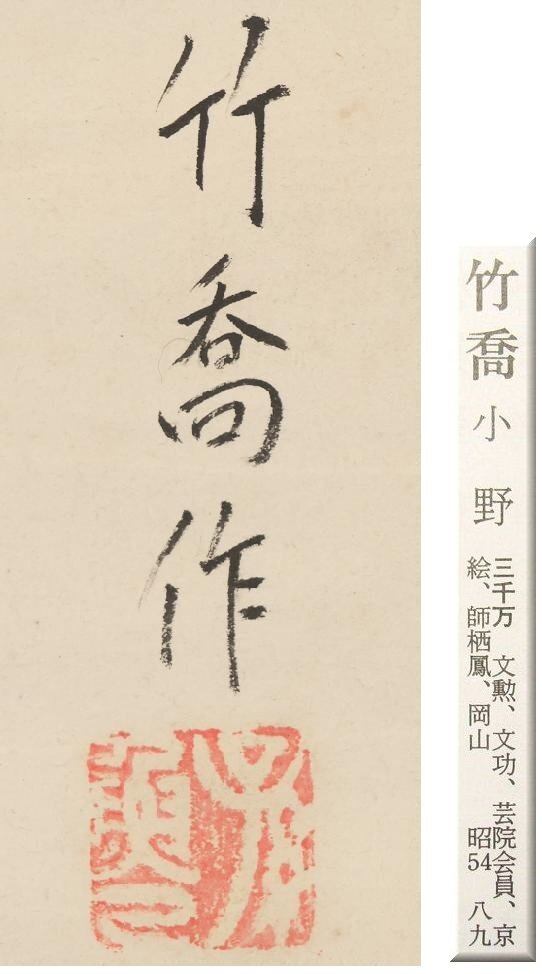 竹喬作
竹喬 小野
三千万 文勲、文功、芸院会員、京
絵、師栖鳳、岡山 昭54 八九